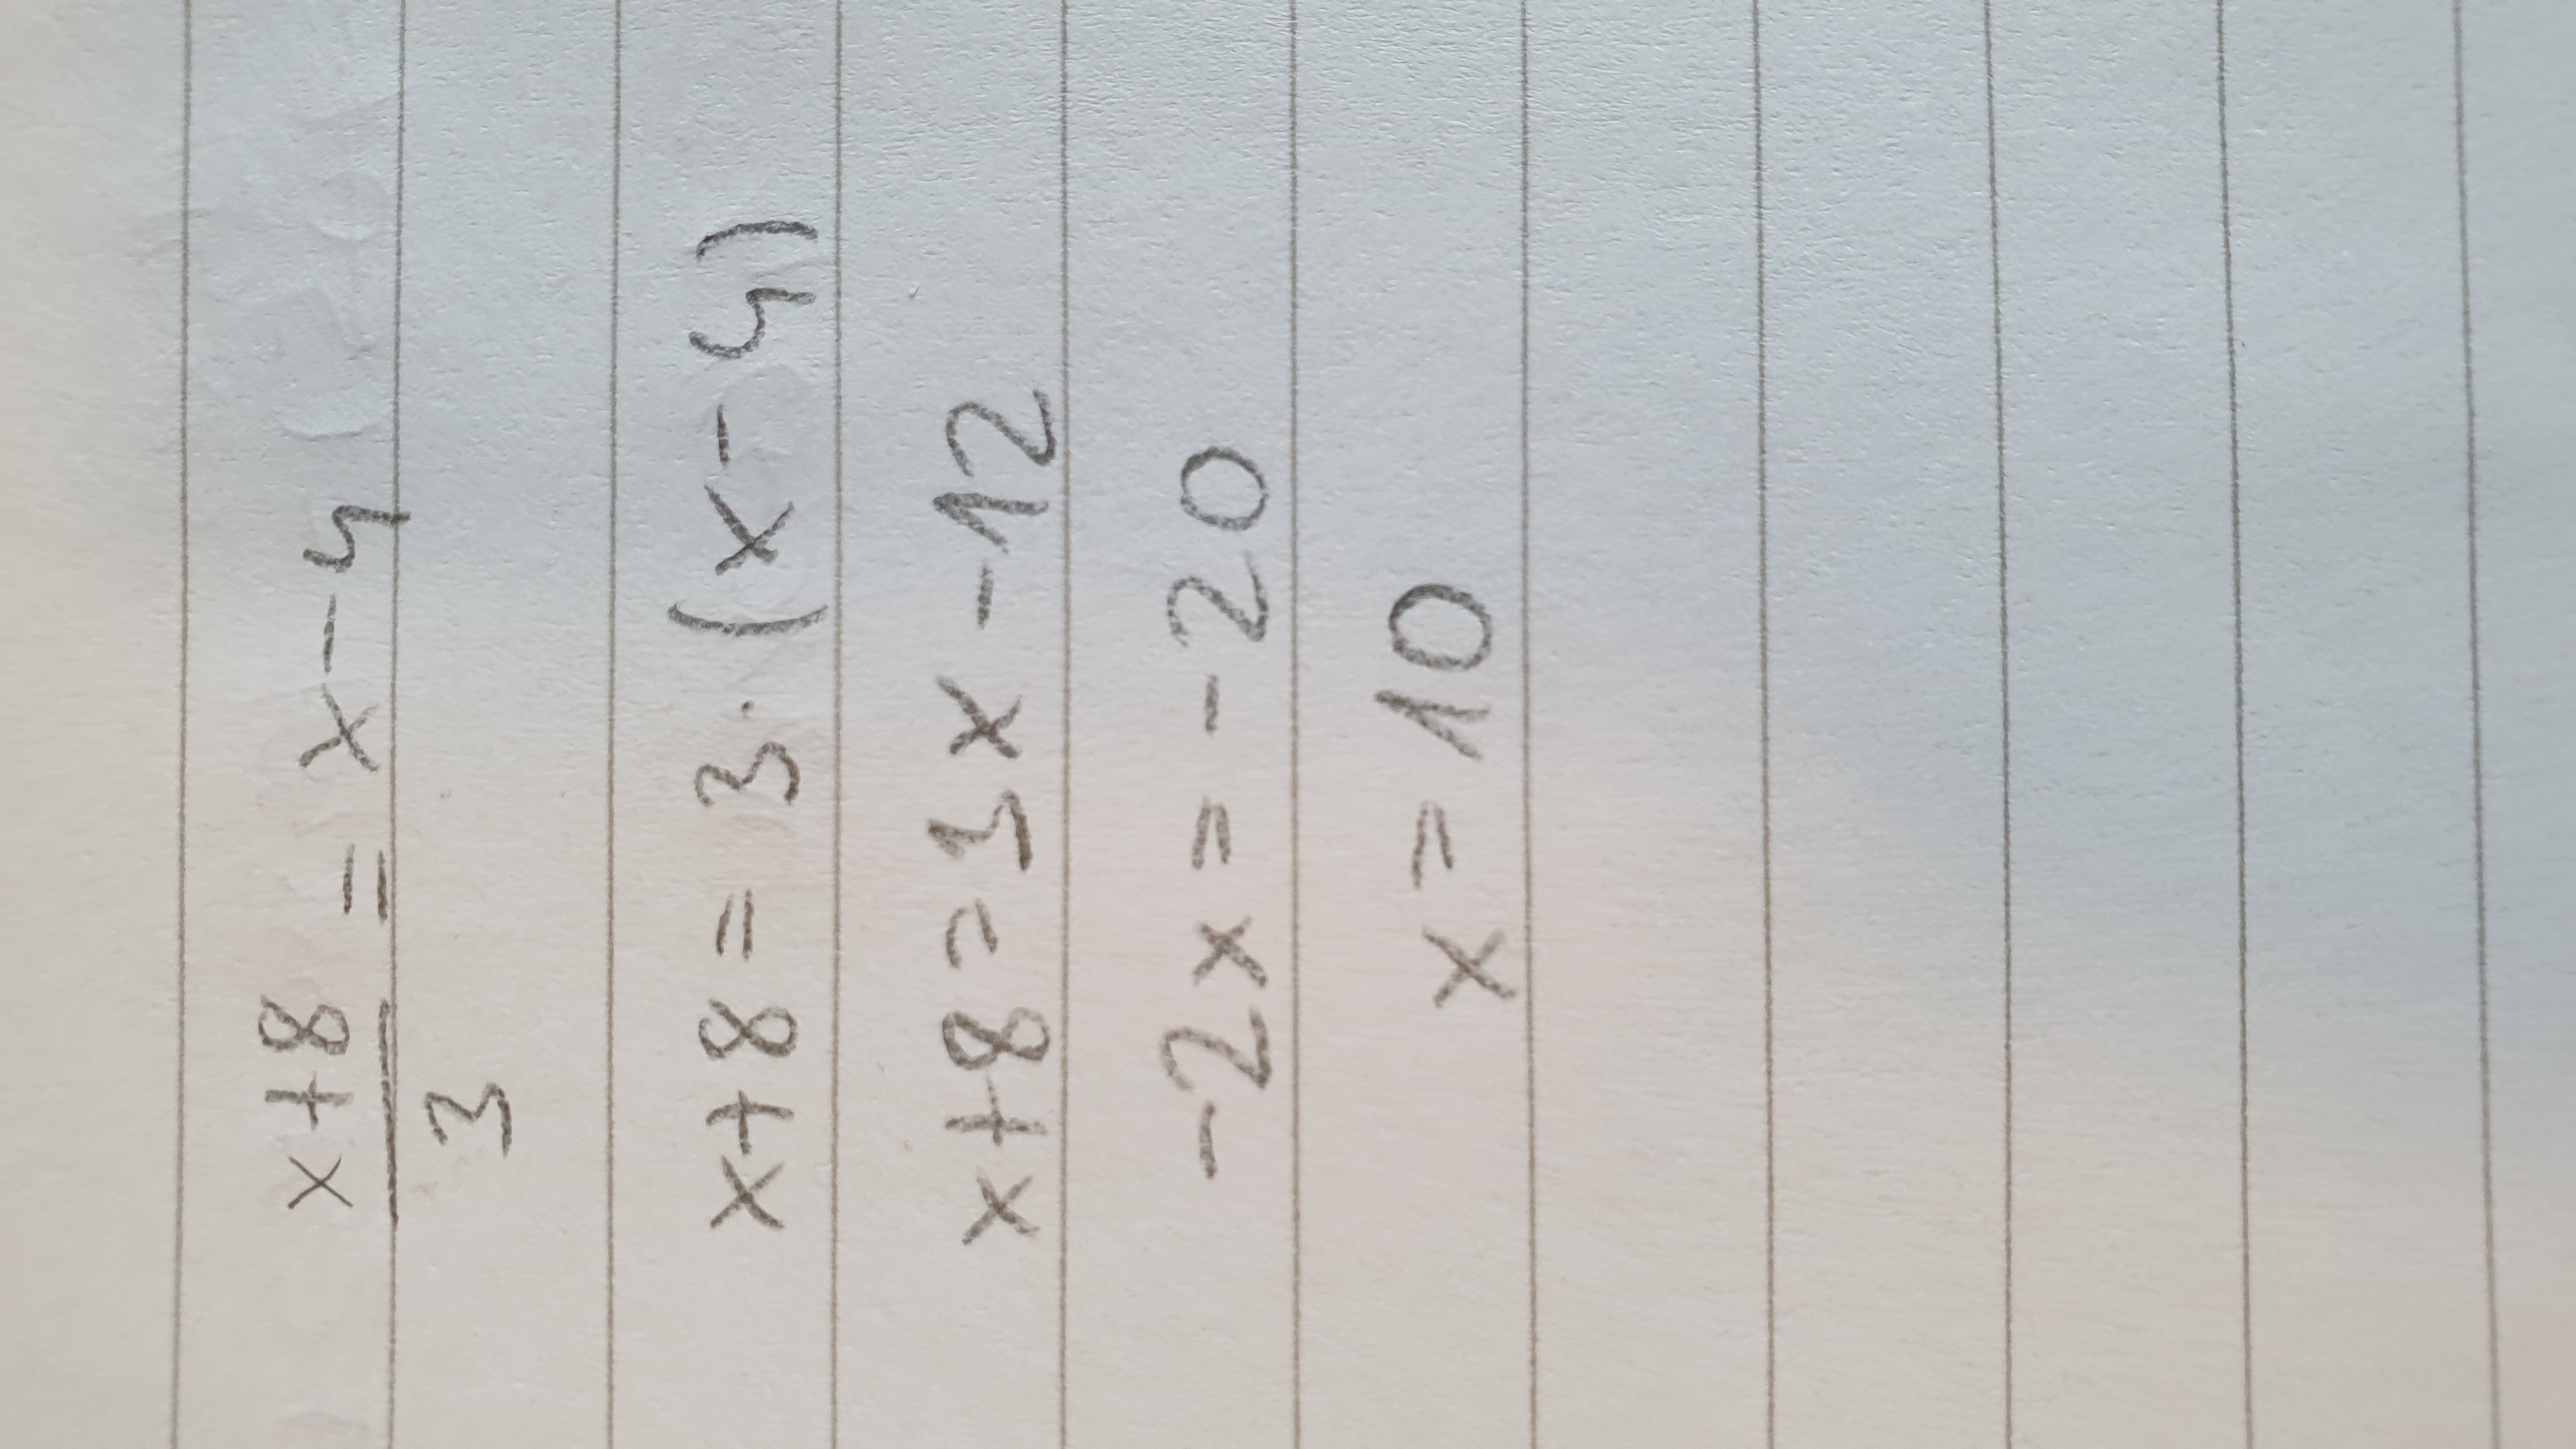 x+8/3 = x-4
x+8 = 3·(x-4)
x+8=3x-12
-2x=-20
x=10